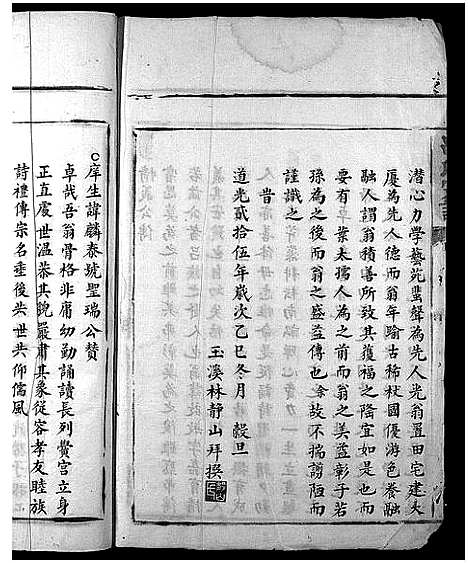 潛心力學藝苑蜚聲為先人光翁置田宅建大
廈為先人德而翁年踰古稀杖國優游色養融
融人謂翁積善所致其獲福之隆宜如是也而
要有草業夫孺人為之前而翁之美益彰子若
孫為之後而翁之盛益傳也余故不揣謭陋而
謹識之
旹
道光貳拾伍年歲次乙巳冬月　穀旦
玉溪林靜山拜撰
庠生諱麟泰號聖瑞公贊
卓哉吾翁骨格非庸幼勤誦讀長列黌宮立身
正直處世溫恭其貌嚴肅其象從容孝友睦族
詩禮傳宗名垂後共世共仰儒風